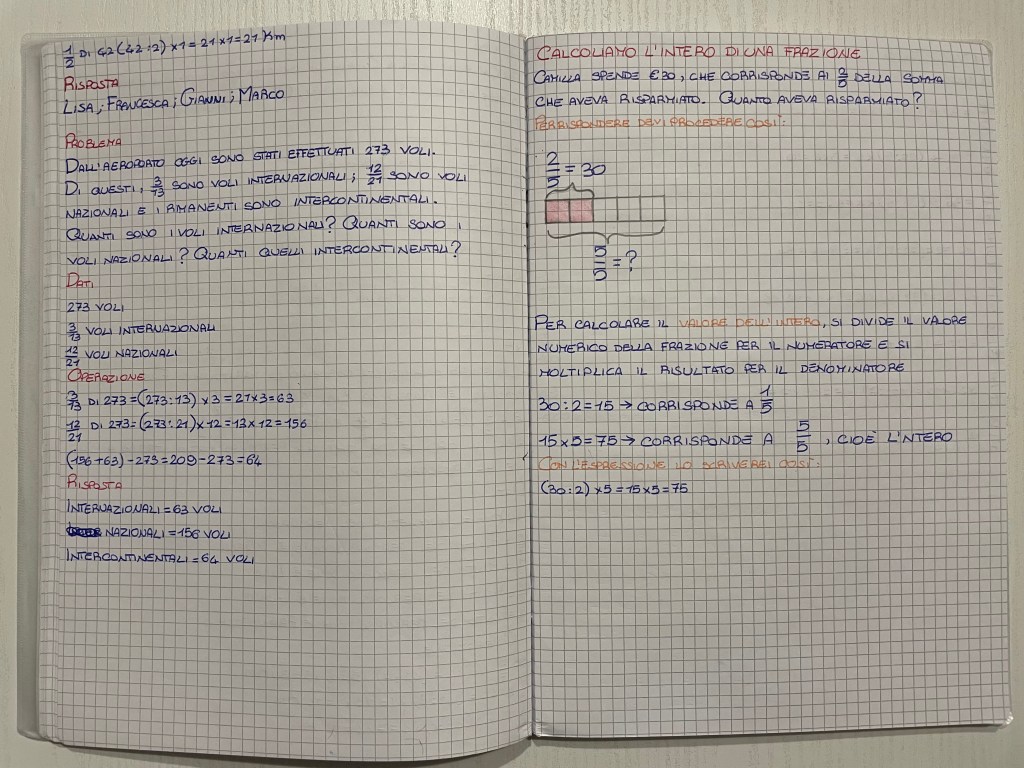 1/2 DI 42 (42:2) x1 = 21x1 = 21 Km
RISPOSTA
LISA; FRANCESCA; GIANNI; MARCO
PROBLEMA
DALL'AEROPORTO OGGI SONO STATI EFFETTUATI 273 VOLI.
DI QUESTI, 3/13 SONO VOLI INTERNAZIONALI; 12/21 SONO VOLI
NAZIONALI E I RIMANENTI SONO INTERCONTINENTALI.
QUANTI SONO I VOLI INTERNAZIONALI? QUANTI SONO I
VOLI NAZIONALI? QUANTI QUELLI INTERCONTINENTALI?
DATI
273 VOLI
3/13 VOLI INTERNAZIONALI
12/21 VOLI NAZIONALI
OPERAZIONE
3/13 DI 273 = (273:13) x 3 = 21x3 = 63
12/21 DI 273 = (273:21) x 12 = 13x12 = 156
(156+63) - 273 = 209 - 273 = 64
RISPOSTA
INTERNAZIONALI = 63 VOLI
NAZIONALI = 156 VOLI
INTERCONTINENTALI = 64 VOLI
CALCOLIAMO L'INTERO DI UNA FRAZIONE
CAMILLA SPENDE €30, CHE CORRISPONDE AI 2/5 DELLA SOMMA
CHE AVEVA RISPARMIATO. QUANTO AVEVA RISPARMIATO?
PER RISPONDERE DEVI PROCEDERE COSÌ:
2/5 = 30
5/5 = ?
PER CALCOLARE IL VALORE DELL'INTERO, SI DIVIDE IL VALORE
NUMERICO DELLA FRAZIONE PER IL NUMERATORE E SI
MOLTIPLICA IL RISULTATO PER IL DENOMINATORE
30:2 = 15 → CORRISPONDE A 1/5
15 x 5 = 75 → CORRISPONDE A 5/5, CIOÈ L'NTERO
CON L'ESPRESSIONE LO SCRIVEREI COSÌ:
(30:2) x5 = 15x5 = 75